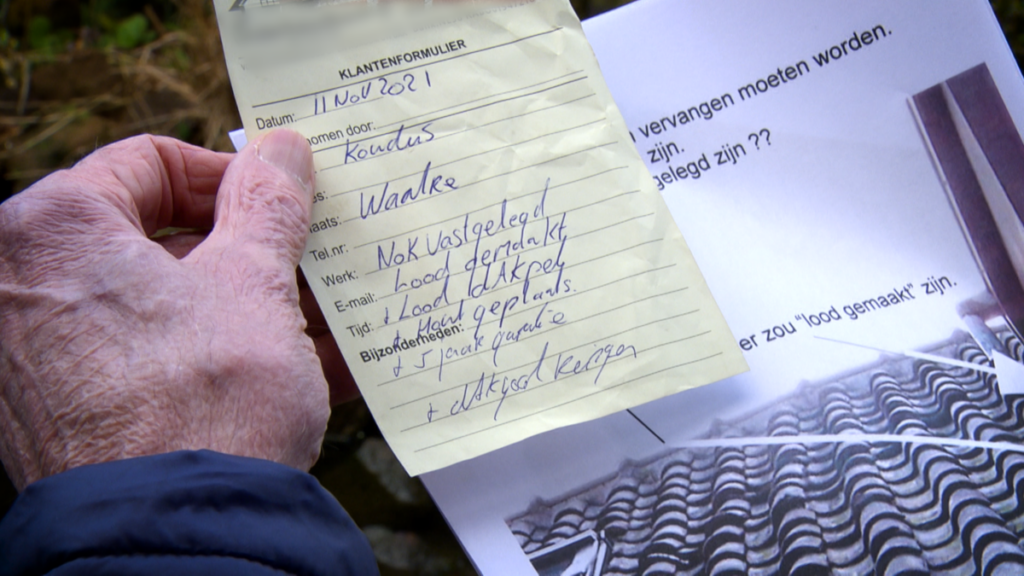 KLANTENFORMULIER
Datum: 11 NOV 2021
nomen door:
Koudus
Waalre
aats:
Tel.nr: Nok vastgelegd
Werk: Lood gemaakt
E-mail: + Lood
Tijd: + geplaats.
Bijzonderheden: + 5 jaar garantie
+
vervangen moeten worden.
zijn.
gelegd zijn ??
er zou "lood gemaakt" zijn.